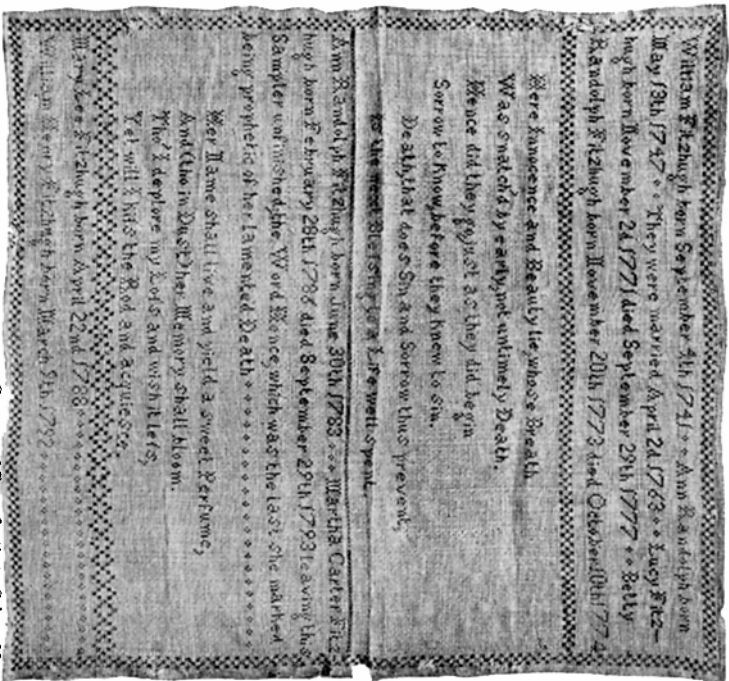 William Fitzhugh born September 4th 1741 Ann Randolph born
May 13th 1747 They were married April 2d 1763 Lucy Fitz-
hugh born November 2d 1771 died September 1777 Betty
Randolph Fitzhugh born November 20th 1773 died October 10th 1774
Here Innocence and Beauty lie, whose Breath
Was snatch'd by early, not untimely Death.
Hence did they go, just as they did begin
Sorrow to know, before they knew to sin.
Death, that does Sin and Sorrow thus prevent,
Is the next Blessing to a Life well spent.
Ann Randolph Fitzhugh born June 30th 1783 Martha Carter Fitz-
hugh born February 28th 1786 died September 29th 1793 leaving this
Sampler unfinished, the Word Hence which was the last she marked
being prophetic of her lamented Death
Her Name shall live and yield a sweet Perfume,
And (tho in Dust) her Memory shall bloom.
Tho' I deplore my Lofs and wish it lefs,
Yet will I kifs the Rod and acquiesce.
Mary Lee Fitzhugh born April 22nd 1788
William Henry Fitzhugh born March 9th 1792